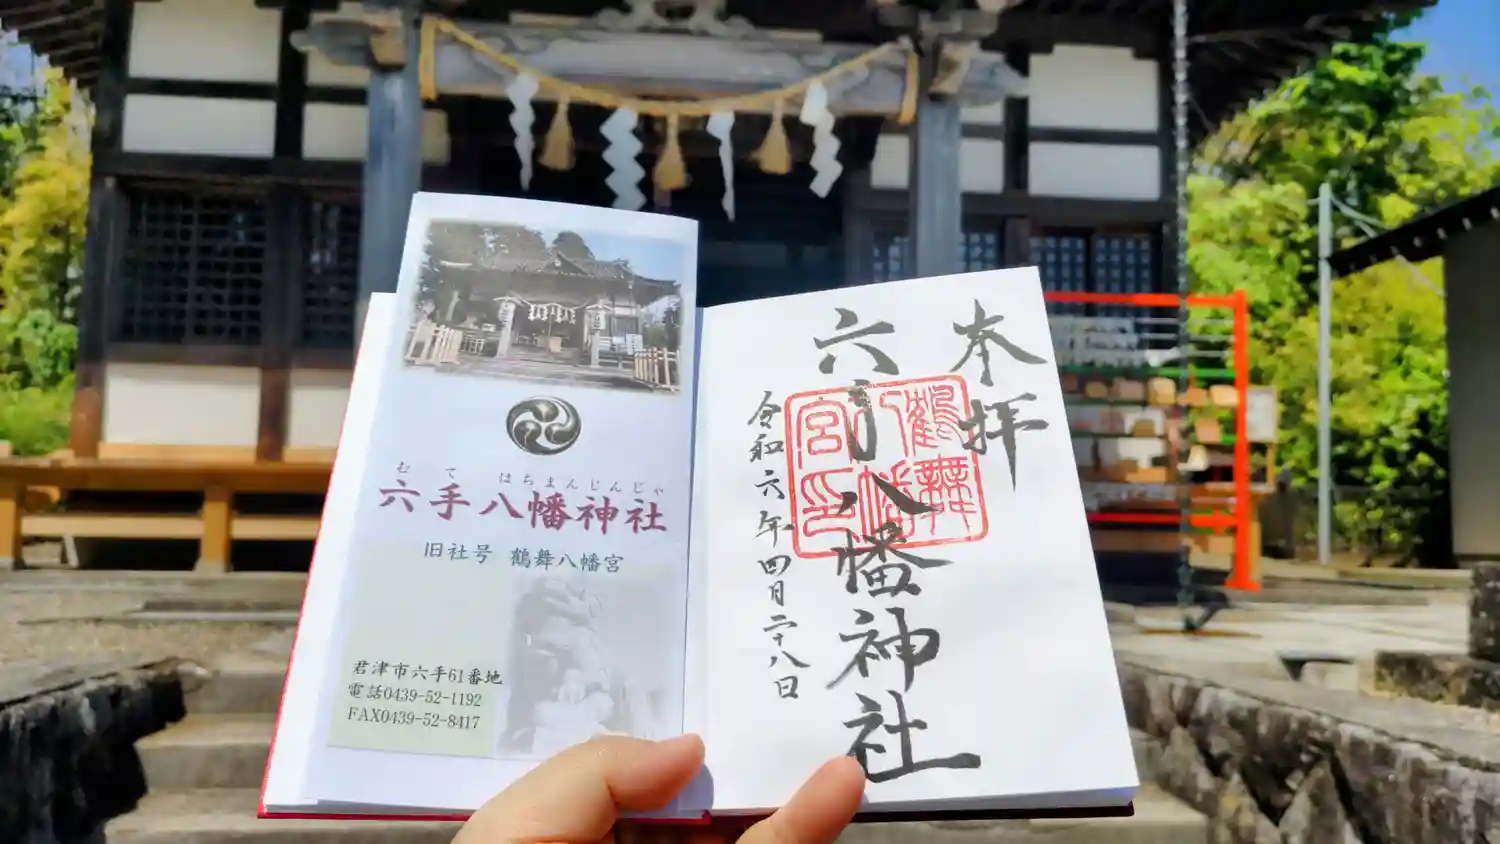 むて はちまんじんじゃ
六手八幡神社
旧社号 鶴舞八幡宮
君津市六手61番地
電話0439-52-1192
FAX0439-52-8417
本拝
六手八幡神社
鶴舞
八幡
宮印
令和六年四月二十八日